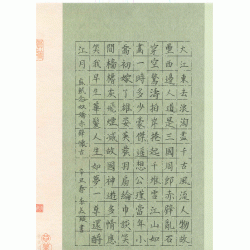 大江東去浪淘盡千古風流人物故
壘西邊人道是三國周郎赤壁亂石
穿空驚濤拍岸捲起千堆雪江山如
畫一時多少豪傑遙想公瑾當年小
喬初嫁了雄姿英發羽扇綸巾談笑
間檣櫓灰飛煙滅故國神遊多情應
笑我早生華髮人生如夢一尊還酹
江月 蘇軾念奴嬌赤壁懷古